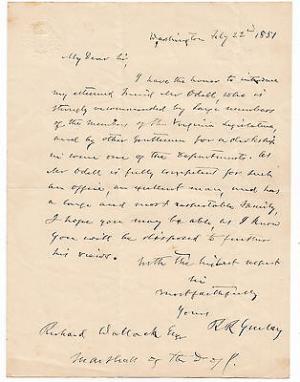 Washington July 22d 1851
My Dear Sir,
I have the honor to introduce
my esteemed friend Mr Odell, who is
strongly recommended by large numbers
of the members of the Virginia Legislature,
and by other Gentlemen for a clerkship
in some one of the Departments. As
Mr Odell is fully competent for such
an office, an excellent man, and has
a large and most respectable family,
I hope you may be able, as I know
you will be disposed to further
his views.
With the highest respect
most faithfully
Yours
R R Gurley
Richard Wallach Esq
Marshall of the D of C.